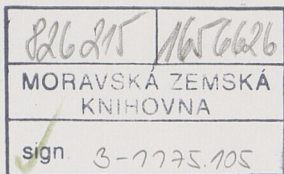 826215 1656626
MORAVSKÁ ZEMSKÁ
KNIHOVNA
sign. 3-1175.105